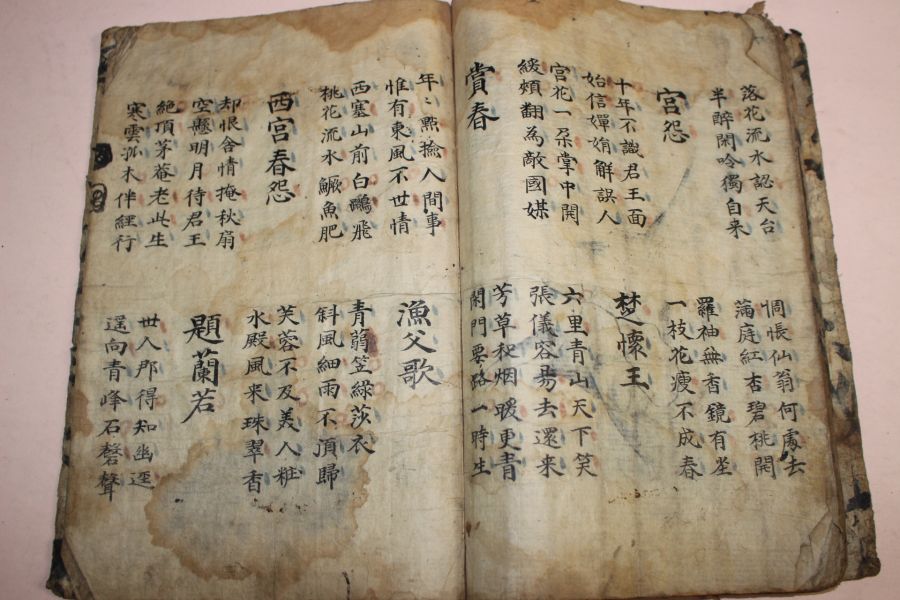 落花流水認天台
半醉閑吟獨自来
惆悵仙翁何處去
滿庭紅杏碧桃開
宮怨
羅袖無香鏡有塵
一枝花瘦不成春
十年不識君王面
始信嬋娟解誤人
楚懷王
宮花一朶掌中開
緩頰翻為敵國媒
六里青山天下笑
張儀容易去還来
賞春
芳草和烟暖更青
閑門要路一時生
年〻點撿人間事
惟有東風不世情
漁父歌
西塞山前白鷗飛
桃花流水鱖魚肥
青蒻笠綠莎衣
斜風細雨不頂歸
西宮春怨
芙蓉不及美人粧
水殿風来珠翠香
却恨含情掩秋扇
空懸明月待君王
題蘭若
絶頂茅菴老此生
寒雲孤木伴經行
世人那得知幽逕
遥向青峰石磬聲